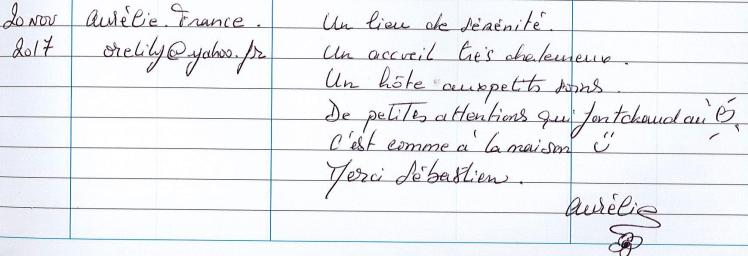 20 NOV Aurélie. France. Un lieu de sérénité.
2017 orelily@yahoo.fr Un accueil très chaleureux.
Un hôte aux petits soins.
De petites attentions qui font chaud au
C'est comme à la maison
Merci Sébastien.
Aurélie